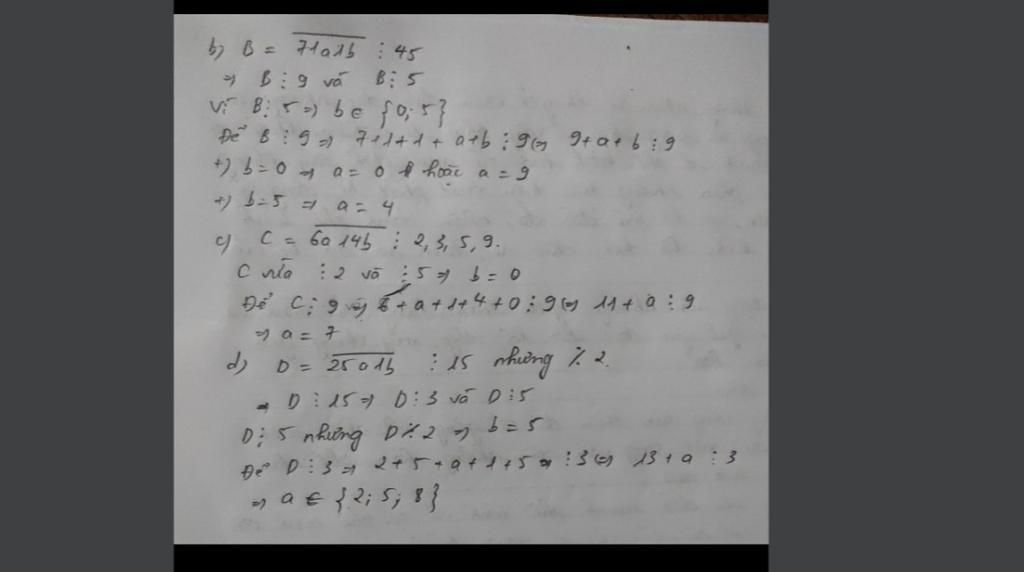 b) B = 71a1b ⋮ 45
=> B ⋮ 9 và B ⋮ 5
Vì B ⋮ 5 => b ∈ {0; 5}
Để B ⋮ 9 => 7+1+1+a+b ⋮ 9 <=> 9+a+b ⋮ 9
+) b=0 => a = 0 hoặc a = 9
+) b=5 => a = 4
c) C = 6a14b ⋮ 2, 3, 5, 9.
C vừa ⋮ 2 và ⋮ 5 => b = 0
Để C ⋮ 9 => 6+a+1+4+0 ⋮ 9 <=> 11+a ⋮ 9
=> a = 7
d) D = 25a1b ⋮ 15 nhưng ⋮̸ 2.
D ⋮ 15 => D ⋮ 3 và D ⋮ 5
D ⋮ 5 nhưng D ⋮̸ 2 => b = 5
Để D ⋮ 3 => 2+5+a+1+5 ⋮ 3 <=> 13+a ⋮ 3
=> a ∈ {2; 5; 8}